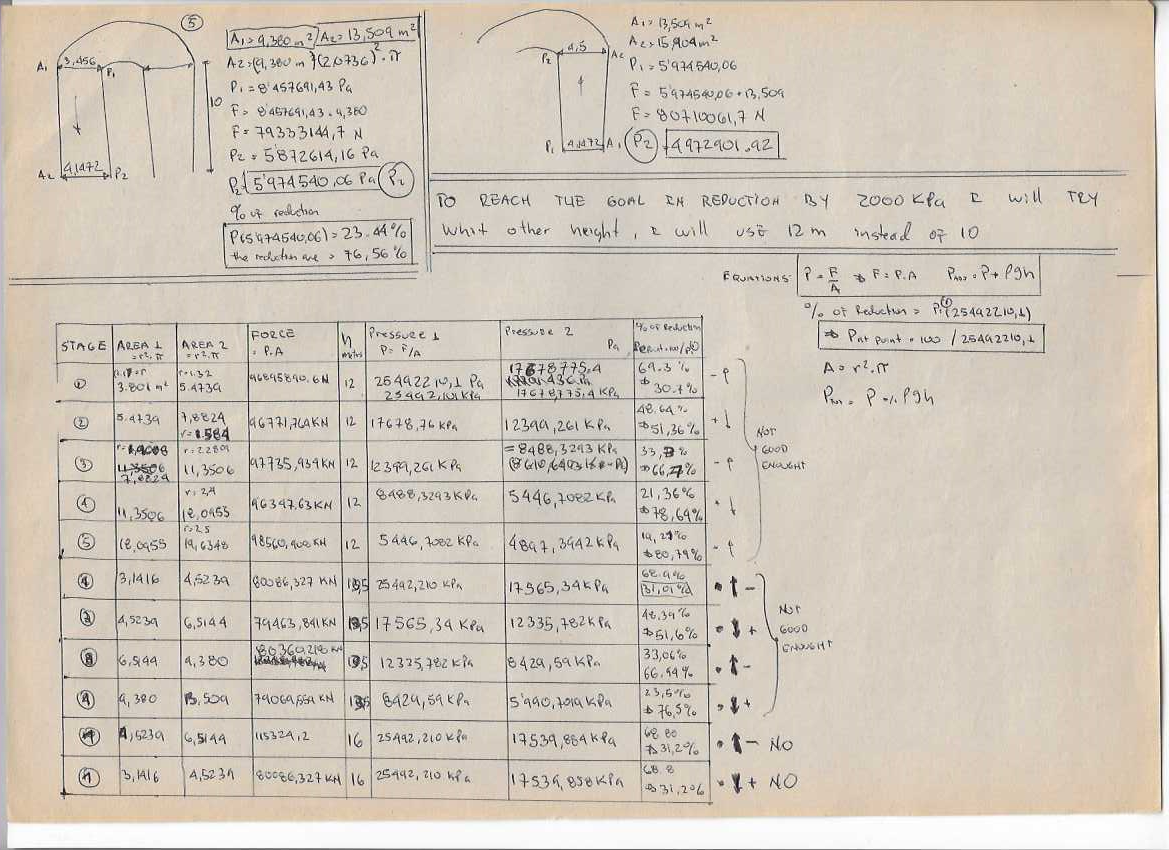 5
A₁ 3,456 P₁
10
A₂ 4,1472 P₂
A₁= 9,380 m² A₂= 13,509 m²
A₂= (9,380 m²)(2,0736)².π
P₁ = 8'457691,43 Pa
F= 8'457691,43 · 9,380
F= 79333144,7 N
P₂ = 5'872614,16 Pa
P₂= 5'974540,06 Pa P₂
% of reduction
P(5'974540,06) = 23.44%
the reduction are = 76,56%
P₂ 4,5 A₂
P₁ 4,1472 A₁
A₁= 13,509 m²
A₂= 15,904 m²
P₁ = 5'974540,06
F = 5'974540,06 · 13,509
F= 80710061,7 N
P₂ = 4972901.92
TO REACH THE GOAL IN REDUCTION BY 2000 KPa I will TRY
Whit other height, I will use 12 m instead of 10
EQUATIONS: P = F/A ⇒ F = P.A Pman = P + ρgh
% of Reduction = P₁(25492210,1)
⇒ Pat point · 100 / 25492210,1
A= r².π
P = P % ρgh
STAGE AREA 1 =r².π AREA 2 =r².π FORCE = P.A h metres Pressure 1 P= F/A Pressure 2 Pa % of Reduction
① 3.801 m² r=1.32 5.4739 96895890.6N 12 25492210,1 Pa 25492,101KPa 17678775,4 17678,775,4 KPa 69.3 % ⇒ 30.7% - ↑
② 5.4739 7,8824 r= 1.584 96771,764KN 12 17678,76 KPa 12399,261 KPa 48.64% ⇒51,36% + ↓
③ 7,8824 r=2.2809 11,3506 97735,934KN 12 12399,261 KPa = 8488,3293 KPa 33,3% ⇒66,7% - ↑
④ 11,3506 r= 2,4 18,0955 96347,63 KN 12 8488,3293 KPa 5446,7082 KPa 21,36% ⇒78,64% + ↓
⑤ 18,0955 r=2.5 19,6348 98560,908 KN 12 5446,7082 KPa 4897,3942 KPa 19,21% ⇒80,79% - ↑
NOT
GOOD
ENOUGHT
① 3,1416 4,5239 80086,327 KN 13,5 25492,210 KPa 17565,34 KPa 68.9% 31,01% ↑ -
② 4,5239 6,5144 79463,841KN 13,5 17565,34 KPa 12335,782 KPa 48,39% ⇒51,6% ↓ +
③ 6,5144 9,380 80360,218 KN 13,5 12335,782 KPa 8429,59 KPa 33,06% 66.94% ↑ -
④ 9,380 13,509 79069,554 KN 13,5 8429,59 KPa 5'990,7019 KPa 23,5% ⇒ 76,5% ↓ +
NOT
GOOD
ENOUGHT
4,5239 6,5144 115324,2 16 25492,210 KPa 17539,884 KPa 68.80 ⇒31,2% ↑ - NO
① 3,1416 4,5239 80086,327 KN 16 25492,210 KPa 17539,858 KPa 68.8 ⇒31,20% ↓ + NO